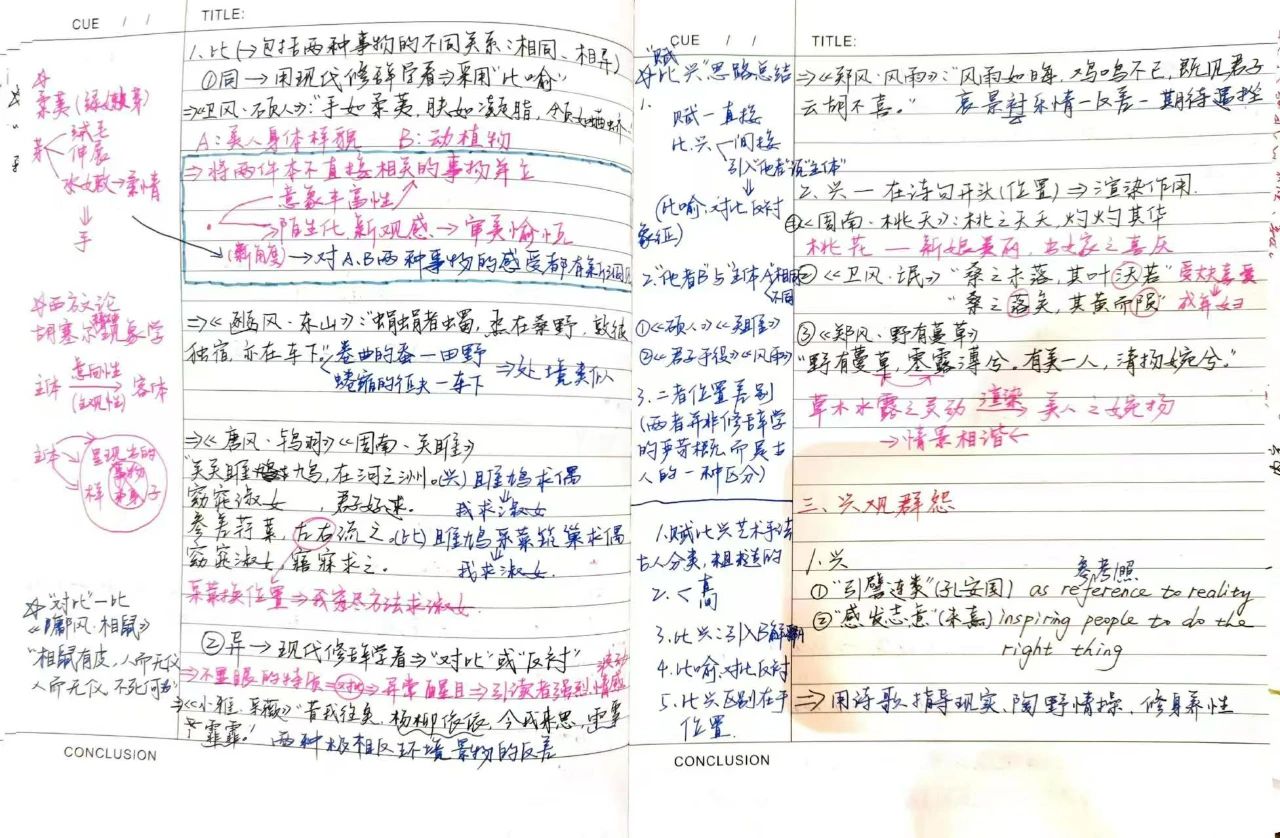 CUE / /
TITLE:
柔荑(绿如嫩草)
茅
绒毛
伸展
水嫩→柔情
手
西方文论
胡塞尔现象学
主体 意向性 客体
(主观性)
主体
呈现出的
事物
样 子
"对比"—比
《鄘风·相鼠》
"相鼠有皮,人而无仪
人而无仪,不死何为"
1.比(→包括两种事物的不同关系:相同、相异)
①同→用现代修辞学看⇒采用"比喻"
⇒《卫风·硕人》:"手如柔荑,肤如凝脂,领如蝤蛴"
A:美人身体样貌 B:动植物
⇒将两件本不直接相关的事物并立
意象丰富性
陌生化 新观感→审美愉悦
(新角度)→对A、B两种事物的感受都有
⇒《豳风·东山》:"蜎蜎者蠋,烝在桑野,敦彼
独宿,亦在车下"卷曲的蚕—田野
蜷缩的征夫—车下
⇒处境类似
⇒《唐风·鸨羽》《周南·关雎》
"关关雎鸠,在河之洲。(兴)雎鸠求偶
窈窕淑女,君子好逑。 我求淑女
参差荇菜,左右流之。(比)雎鸠采菜筑巢求偶
窈窕淑女,寤寐求之。 我求淑女.
采菜换位置⇒我穷尽方法求淑女.
②异→现代修辞学看⇒"对比"或"反衬"
⇒不显眼的特质⇒对比⇒异常醒目⇒引读者强烈情感
⇒《小雅·采薇》"昔我往矣,杨柳依依,今我来思,雨雪
霏霏." 两种极相反环境景物的反差
CONCLUSION
CUE / /
TITLE:
"赋
比兴"思路总结
1.
赋—直接
比、兴 间接
引入"他者"说"主体"
(比喻、对比反衬
象征)
2."他者B"与"主体A"相同
不同
①《硕人》《关雎》
②《君子于役》《风雨》
3.二者位置差别
(两者并非修辞学
的严苛概念而是古
人的一种区分)
1.赋比兴艺术手法
古人分类,粗线条的
2.<高
3.比兴:引入B
4.比喻、对比反衬
5.比兴区别在于
位置.
CONCLUSION
⇒《郑风·风雨》:"风雨如晦,鸡鸣不已,既见君子
云胡不喜。" 哀景衬乐情—反差—期待遇挫
2.兴—在诗句开头(位置)⇒渲染作用.
①《周南·桃夭》:桃之夭夭,灼灼其华
桃花—新娘美丽,出嫁之喜庆
②《卫风·氓》"桑之未落,其叶沃若"受丈夫喜爱
"桑之落矣,其黄而陨"成弃妇
③《郑风·野有蔓草》
"野有蔓草,零露漙兮。有美一人,清扬婉兮。"
草木水露之灵动 渲染 美人之婉扬
→情景相谐←
三、兴观群怨
1.兴 参考照
①"引譬连类"(孔安国) as reference to reality
②"感发志意"(朱熹) inspiring people to do the
right thing
⇒用诗歌指导现实、陶野情操、修身养性